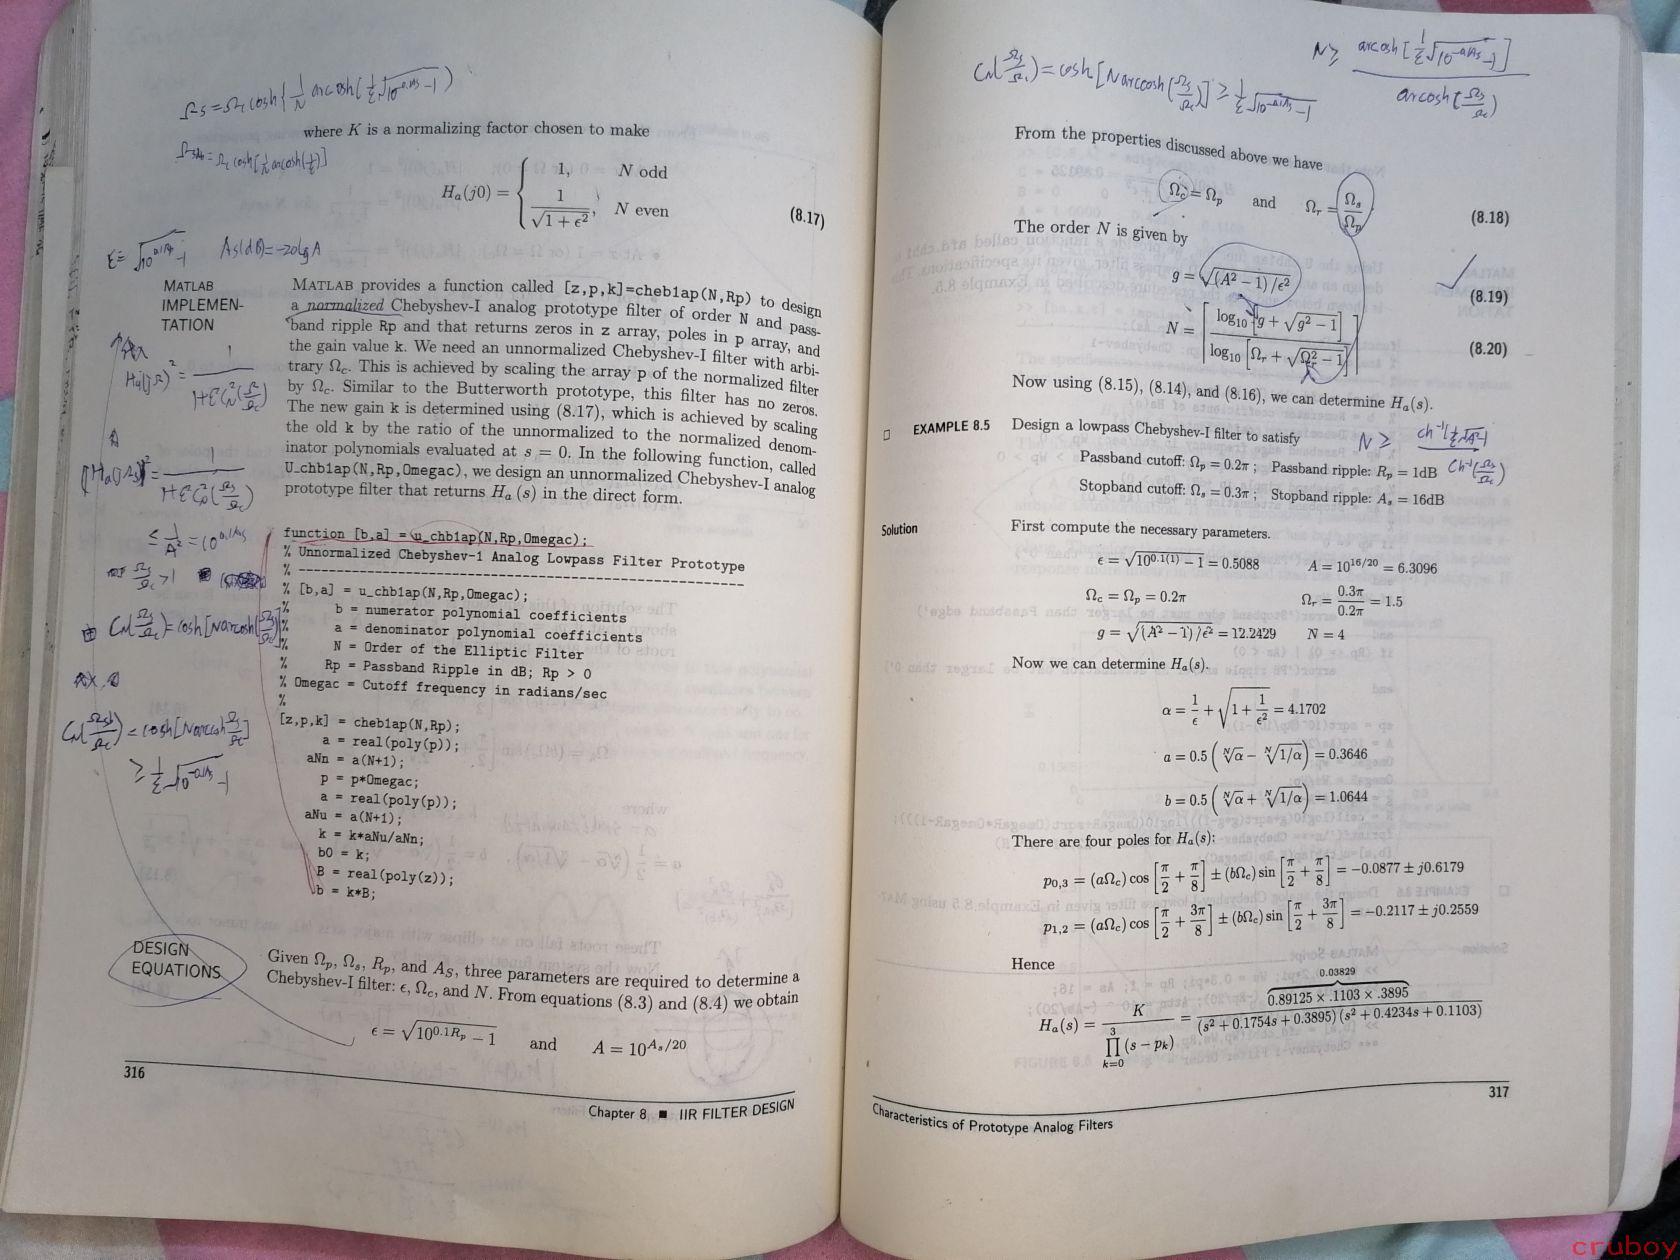 where K is a normalizing factor chosen to make
H_a(j0) = { 1, N odd
1/√(1 + ϵ²), N even (8.17)
MATLAB
IMPLEMEN-
TATION
MATLAB provides a function called [z,p,k]=cheb1ap(N,Rp) to design
a normalized Chebyshev-I analog prototype filter of order N and pass-
band ripple Rp and that returns zeros in z array, poles in p array, and
the gain value k. We need an unnormalized Chebyshev-I filter with arbi-
trary Ω_c. This is achieved by scaling the array p of the normalized filter
by Ω_c. Similar to the Butterworth prototype, this filter has no zeros.
The new gain k is determined using (8.17), which is achieved by scaling
the old k by the ratio of the unnormalized to the normalized denom-
inator polynomials evaluated at s = 0. In the following function, called
U_chb1ap(N,Rp,Omegac), we design an unnormalized Chebyshev-I analog
prototype filter that returns H_a (s) in the direct form.
function [b,a] = u_chb1ap(N,Rp,Omegac);
% Unnormalized Chebyshev-1 Analog Lowpass Filter Prototype
% --------------------------------------------------------
% [b,a] = u_chb1ap(N,Rp,Omegac);
% b = numerator polynomial coefficients
% a = denominator polynomial coefficients
% N = Order of the Elliptic Filter
% Rp = Passband Ripple in dB; Rp > 0
% Omegac = Cutoff frequency in radians/sec
%
[z,p,k] = cheb1ap(N,Rp);
a = real(poly(p));
aNn = a(N+1);
p = p*Omegac;
a = real(poly(p));
aNu = a(N+1);
k = k*aNu/aNn;
b0 = k;
B = real(poly(z));
b = k*B;
DESIGN
EQUATIONS
Given Ω_p, Ω_s, R_p, and A_S, three parameters are required to determine a
Chebyshev-I filter: ϵ, Ω_c, and N. From equations (8.3) and (8.4) we obtain
ϵ = √(10^(0.1R_p) − 1) and A = 10^(A_s/20)
316
Chapter 8 ■ IIR FILTER DESIGN
As(dB)=-20lgA
From the properties discussed above we have
Ω_c = Ω_p and Ω_r = Ω_s/Ω_p (8.18)
The order N is given by
g = √((A² − 1) /ϵ²) (8.19)
N = ⌈ log₁₀ [g + √(g² − 1)] / log₁₀ [Ω_r + √(Ω_r² − 1)] ⌉ (8.20)
Now using (8.15), (8.14), and (8.16), we can determine H_a(s).
□ EXAMPLE 8.5 Design a lowpass Chebyshev-I filter to satisfy
Passband cutoff: Ω_p = 0.2π ; Passband ripple: R_p = 1dB
Stopband cutoff: Ω_s = 0.3π ; Stopband ripple: A_s = 16dB
Solution First compute the necessary parameters.
ϵ = √(10^(0.1(1)) − 1) = 0.5088 A = 10^(16/20) = 6.3096
Ω_c = Ω_p = 0.2π Ω_r = 0.3π/0.2π = 1.5
g = √((A² − 1) /ϵ²) = 12.2429 N = 4
Now we can determine H_a(s).
α = 1/ϵ + √(1 + 1/ϵ²) = 4.1702
a = 0.5 ( ᴺ√α − ᴺ√(1/α) ) = 0.3646
b = 0.5 ( ᴺ√α + ᴺ√(1/α) ) = 1.0644
There are four poles for H_a(s):
p_0,3 = (aΩ_c) cos [π/2 + π/8] ± (bΩ_c) sin [π/2 + π/8] = −0.0877 ± j0.6179
p_1,2 = (aΩ_c) cos [π/2 + 3π/8] ± (bΩ_c) sin [π/2 + 3π/8] = −0.2117 ± j0.2559
Hence
H_a(s) = K / ∏_(k=0)^3 (s − p_k) = 0.03829 0.89125 × .1103 × .3895 / (s² + 0.1754s + 0.3895) (s² + 0.4234s + 0.1103)
317
Characteristics of Prototype Analog Filters
cruboy